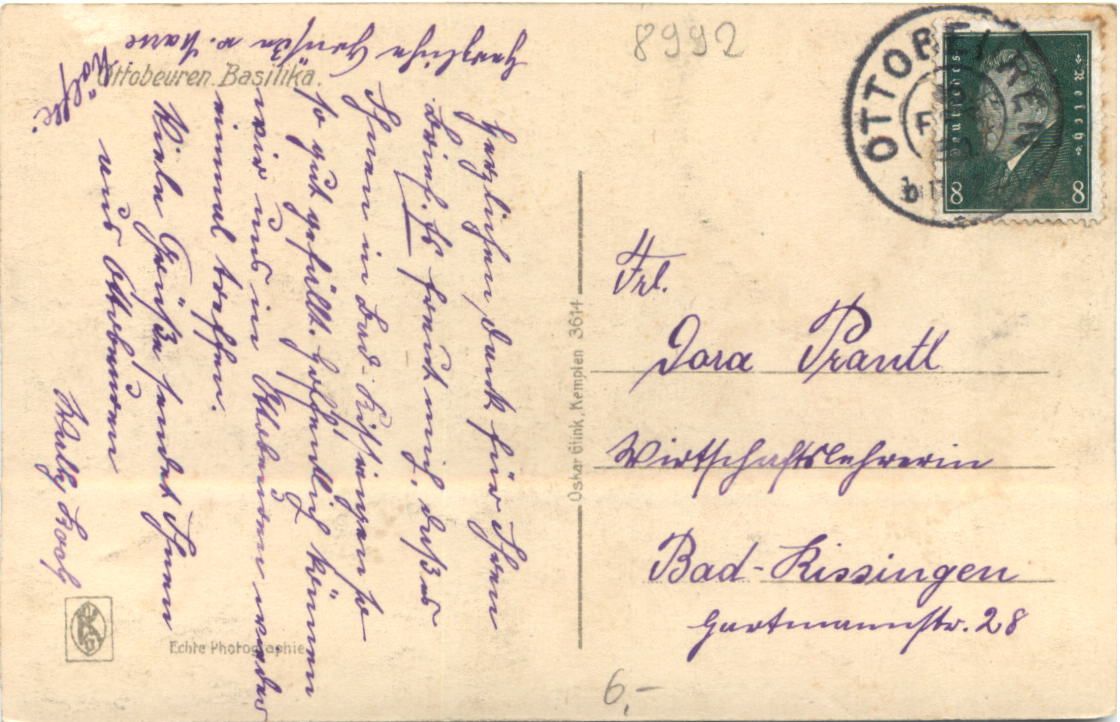 Ottobeuren. Basilika.
8992
OTTOBEUREN
Deutsches Reich
8 8
Herzlichen Dank für Ihren
Brief. Es freut mich, daß es
Ihnen in Bad-Kissingen so
so gut gefällt. Hoffentlich können
wir uns in Ottobeuren wieder
einmal treffen.
Viele Grüße sendet Ihnen
aus Ottobeuren
Herzliche Grüße v.
Frl.
Dora Prantl
Wirtschaftslehrerin
Bad-Kissingen
Hartmannstr. 28
Oskar Glink, Kempten 3614
Echte Photographie
6,-